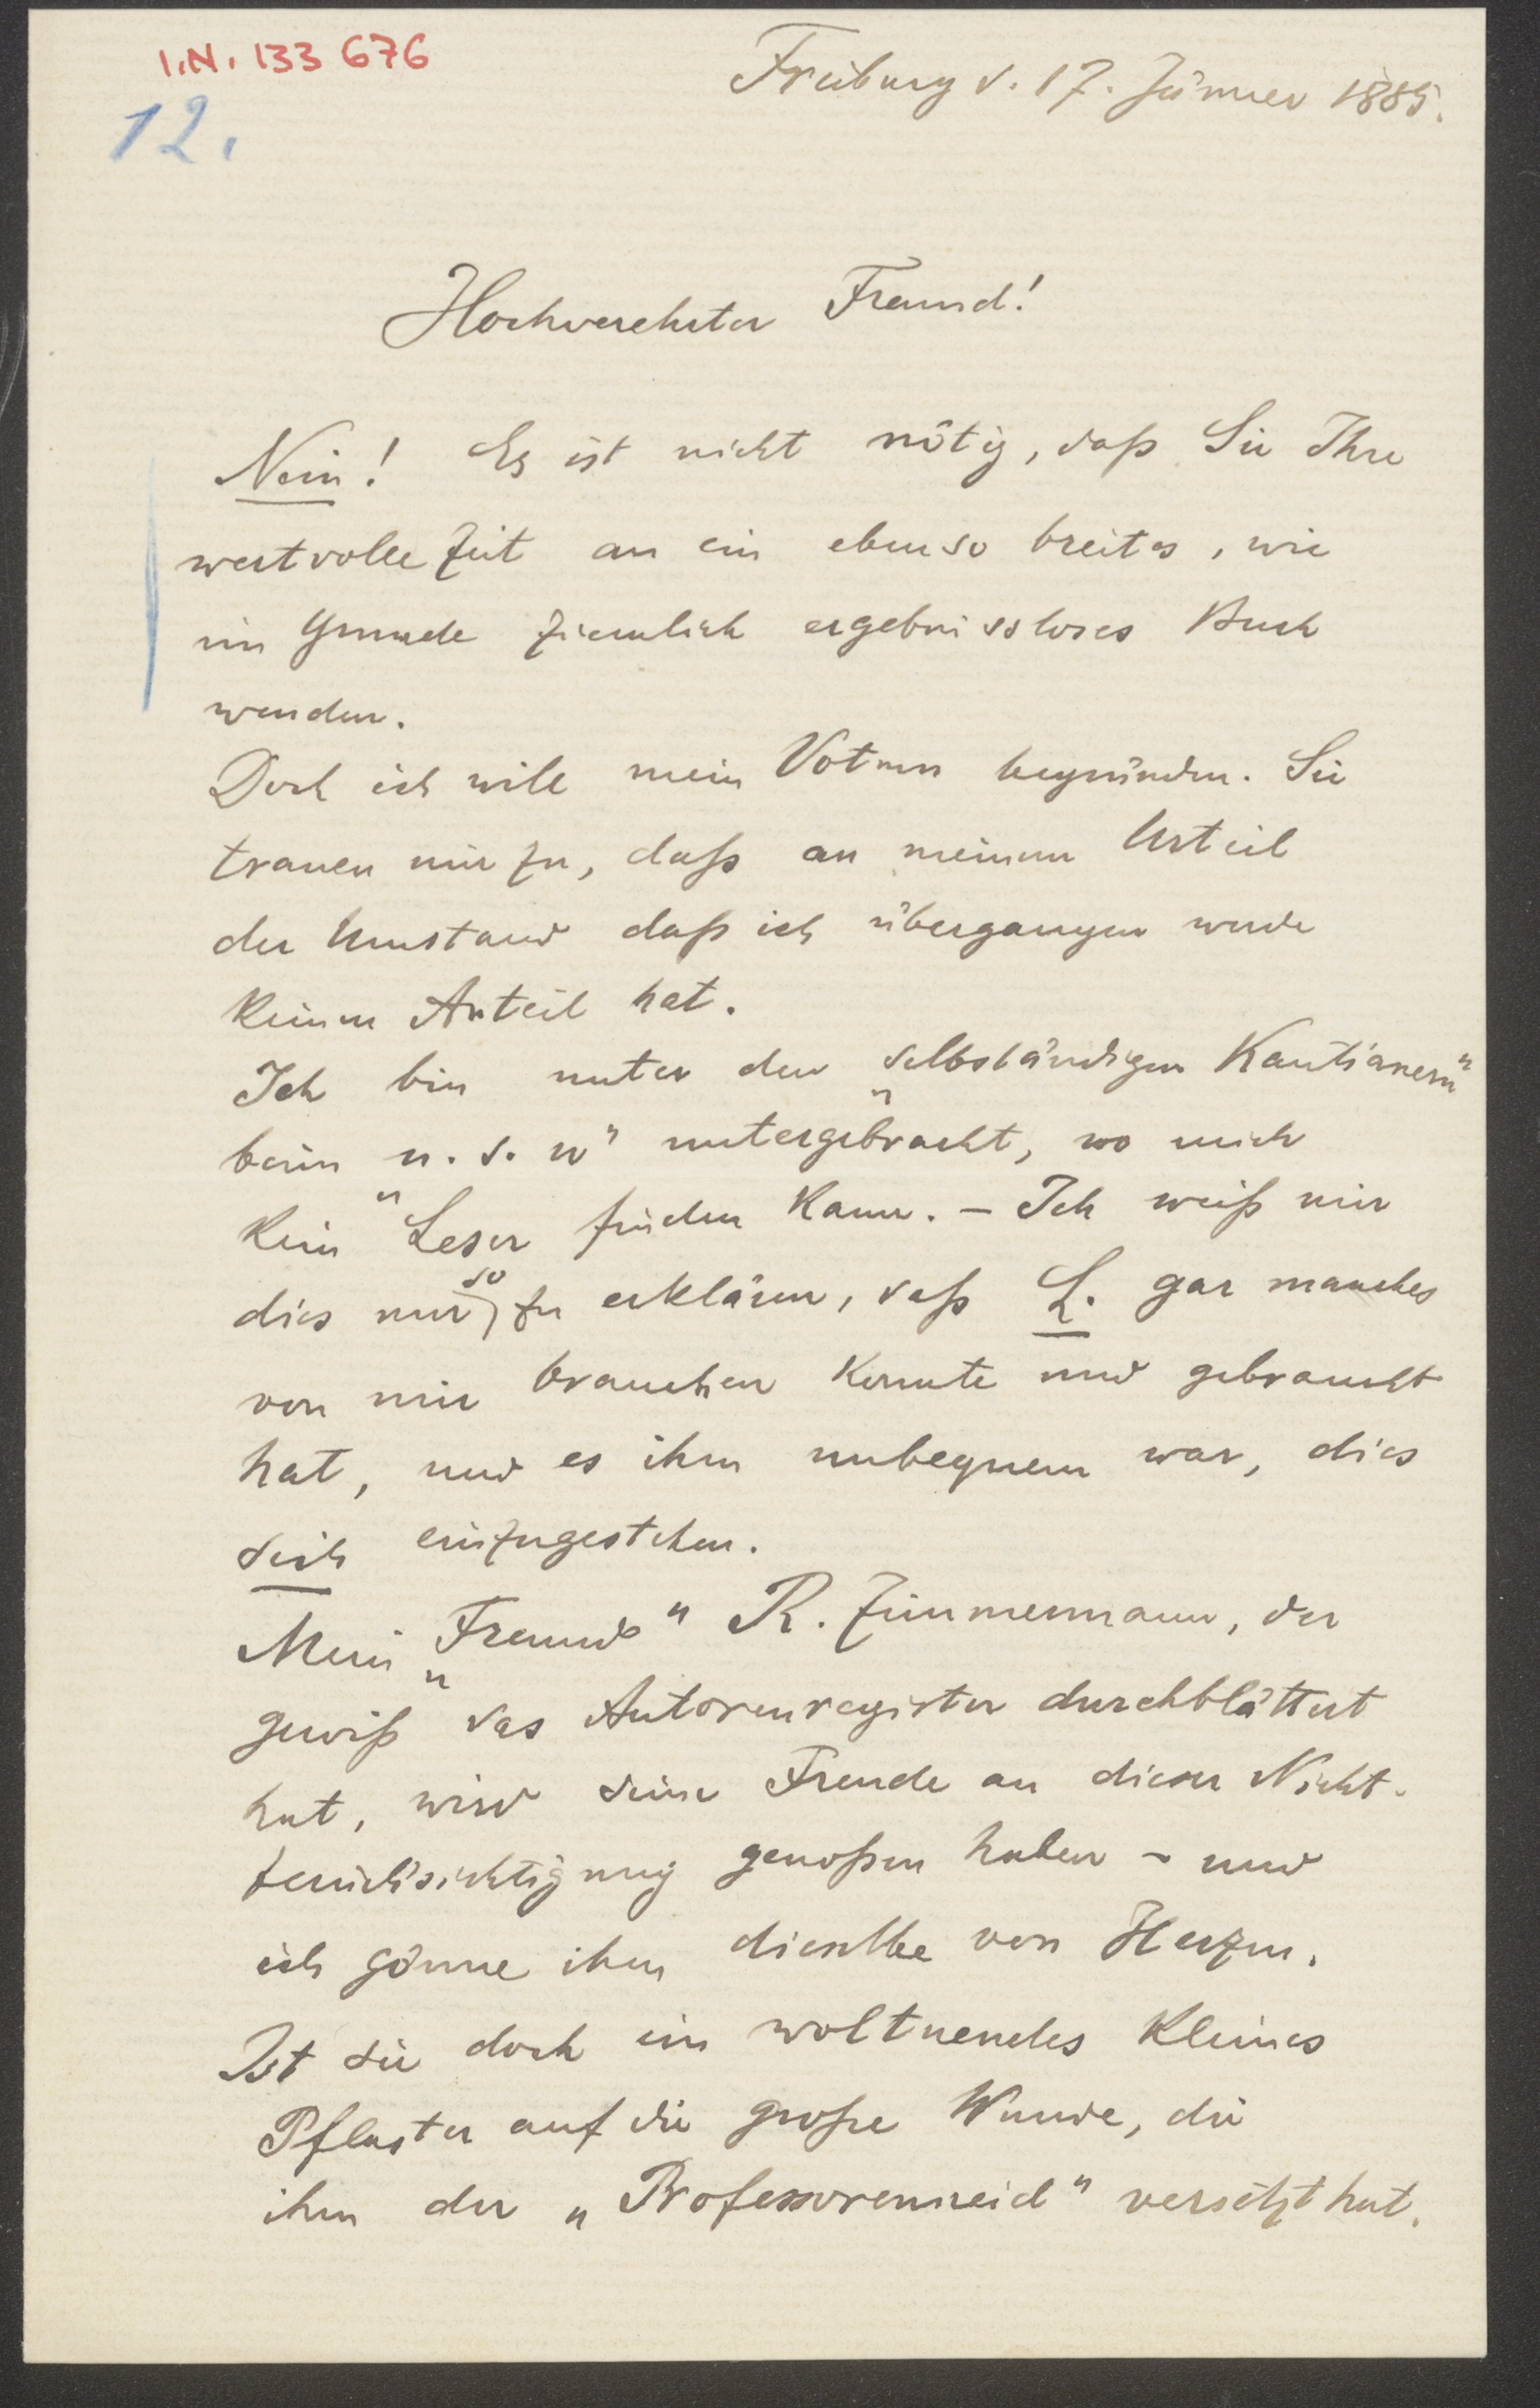 I.N. 133 676
Freiburg d. 17. Jänner 1885.
12.
Hochverehrter Freund!
Nein! Es ist nicht nötig, daß Sie Ihre
wertvolle Zeit an ein ebenso breites, wie
im Grunde ziemlich ergebnissloses Buch
wenden.
Doch ich will mein Votum begründen. Sie
trauen mir zu, daß an meinem Urteil
der Umstand daß ich übergangen wurde
keinen Anteil hat.
Ich bin unter den „selbständigen Kantianern“
beim „u. s. w“ untergebracht, wo mich
kein Leser finden kann. – Ich weiß mir
dies nur so zu erklären, daß L. gar manches
von mir brauchen konnte und gebraucht
hat, und es ihm unbequem war, dies
sich einzugestehen.
Mein „Freund“ R. Zimmermann, der
gewiß das Autorenregister durchblättert
hat, wird seine Freude an dieser Nicht-
berücksichtigung genoßen haben – und
ich gönne ihm dieselbe von Herzen.
Ist sie doch ein woltuendes kleines
Pflaster auf die große Wunde, die
ihm der „Professorenneid“ versetzt hat.